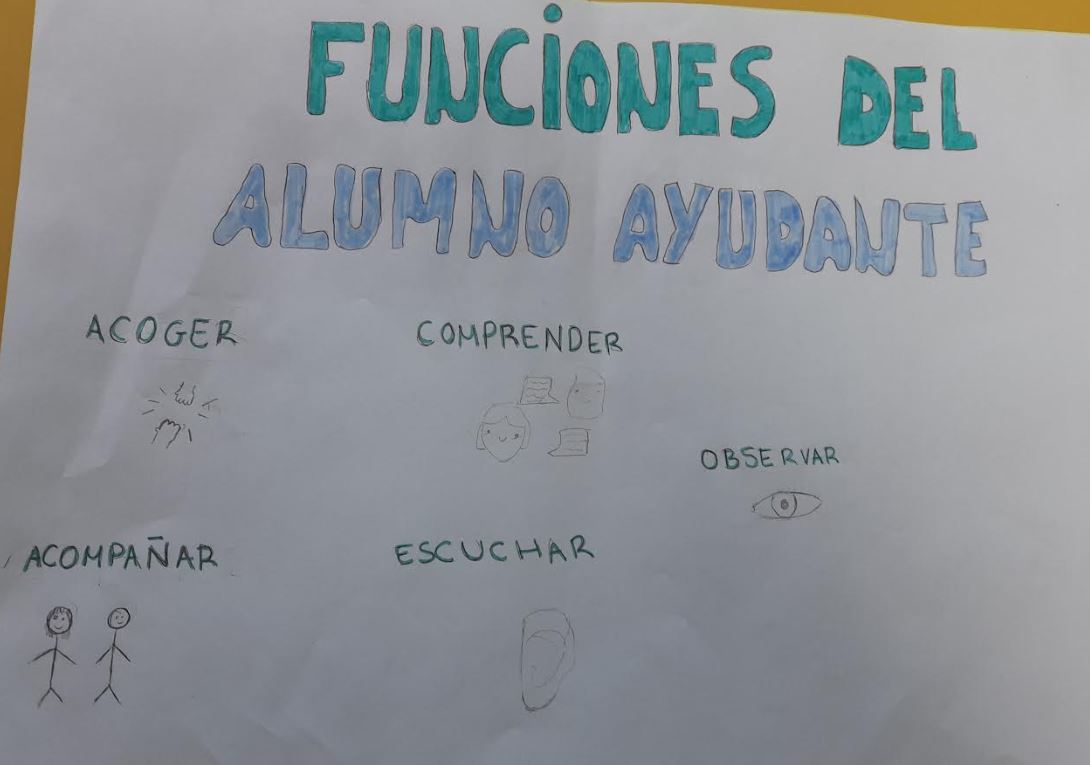 FUNCiONES DEL
ALUMNO AYUDANTE
ACOGER
COMPRENDER
OBSERVAR
ACOMPAÑAR
ESCUCHAR